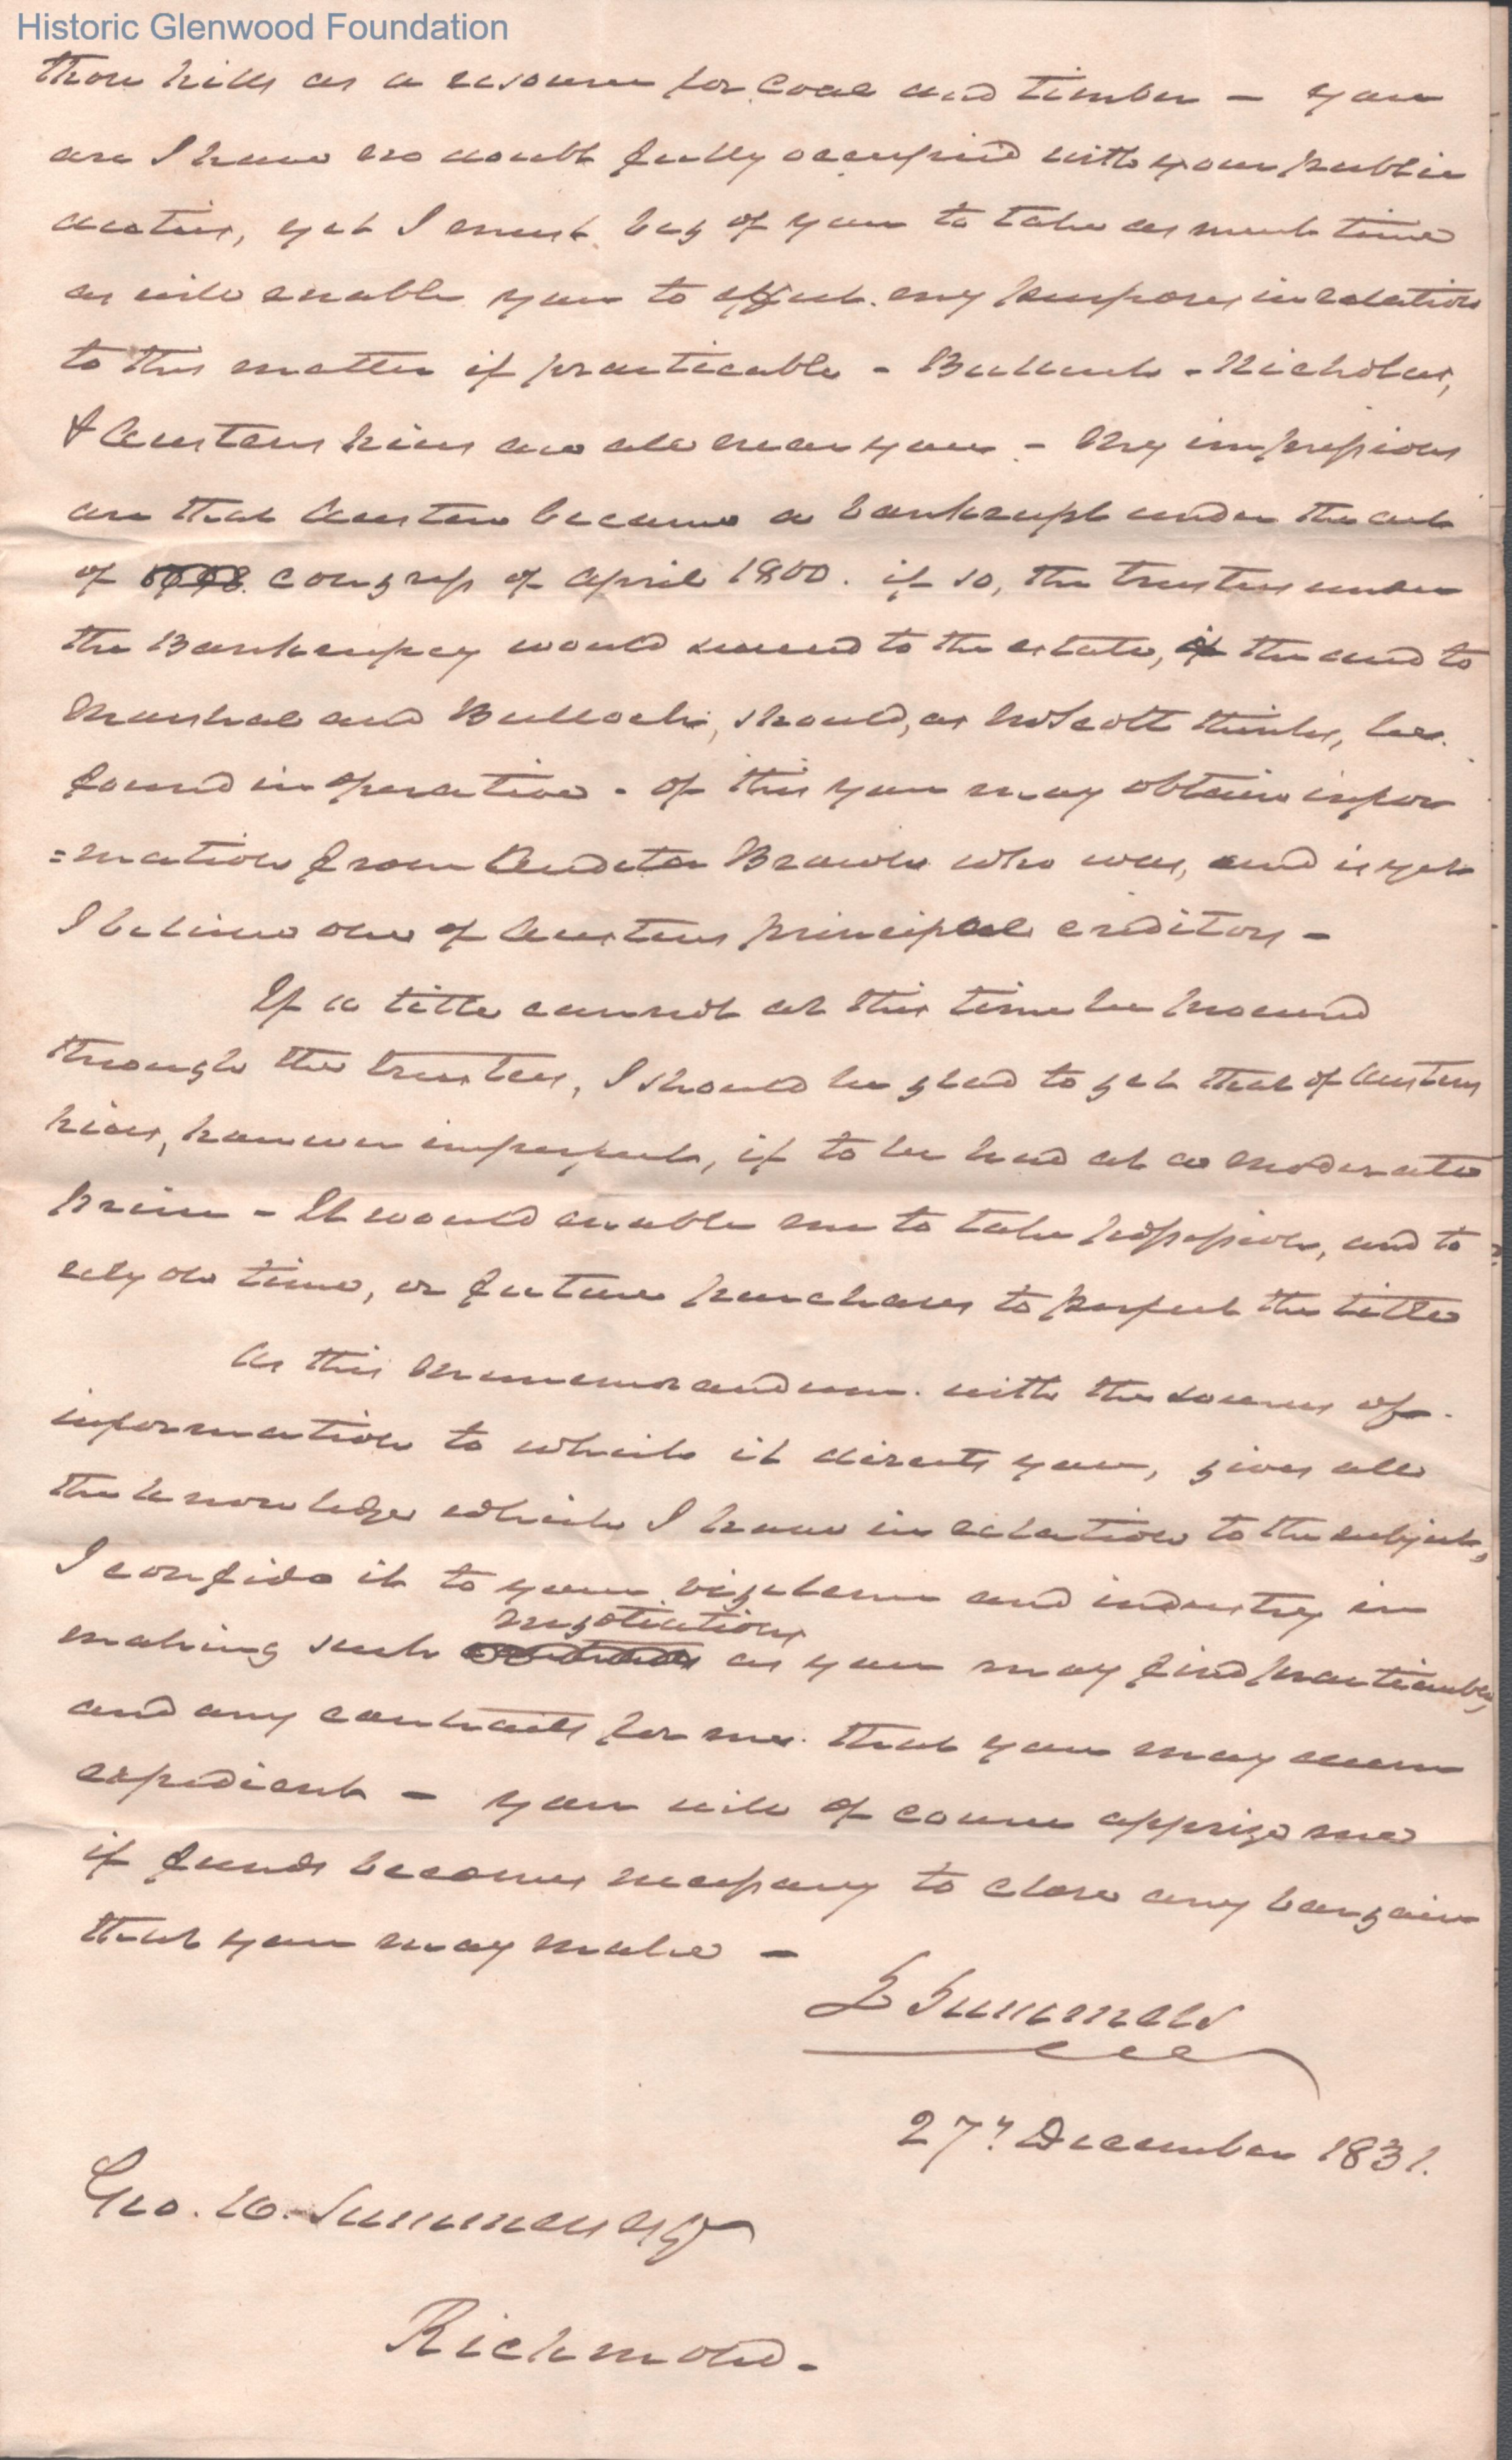 Historic Glenwood Foundation
those hills as a resource for coal and timber — you
are I have no doubt fully occupied with your public
duties, yet I must beg of you to take as much time
as will enable you to effect my purposes in relation
to this matter if practicable - Bullock - Nicholas,
& Austens hiers are all near you - My impressions
are that Austen became a bankrupt under the act
of congress of April 1800. if so, the trustees under
the Bankrupcy would succeed to the estate, if the deed to
Marshal and Bullock, should, as Wolcott thinks, be
found inoperative - of this you may obtain infor
=mation from Auditor Brown who was, and is yet
I believe one of Austens principal creditors -
If a title cannot at this time be procured
through the trustees, I should be glad to get that of Austens
hiers, however imperfect, if to be had at a moderate
price - It would enable me to take possession, and to
rely on time, or future purchases to perfect the title
As this Memorandum with the sources of
information to which it directs you, gives all
the knowledge which I have in relation to the subject,
I confide it to your vigilance and industry in
negotiations
making such as you may find practicable,
and any contracts for me that you may deem
expedient - you will of course apprize me
if funds becomes necessary to close any bargain
that you may make -
L Summers
27th December 1831.
Geo. W. Summers esqr
Richmond -